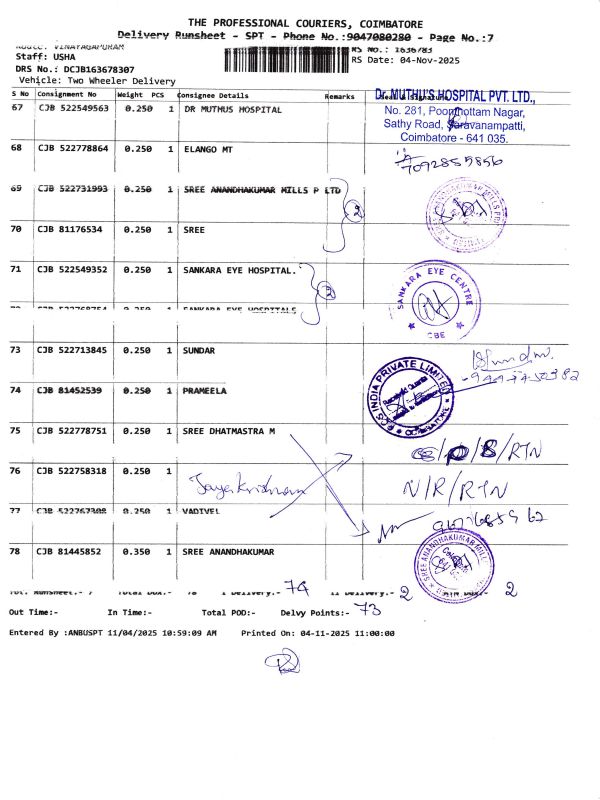 THE PROFESSIONAL COURIERS, COIMBATORE
Delivery Runsheet - SPT - Phone No.:9047080280 - Page No.:7
Route: VINAYAGAPURAM
RS No.: 1636783
Staff: USHA
RS Date: 04-Nov-2025
DRS No.: DCJB163678307
Vehicle: Two Wheeler Delivery
S No Consignment No Weight PCS Consignee Details Remarks
67 CJB 522549563 0.250 1 DR MUTHUS HOSPITAL
Dr. MUTHU'S HOSPITAL PVT. LTD.,
No. 281, Poonthottam Nagar,
Sathy Road, Saravanampatti,
Coimbatore - 641 035.
68 CJB 522778864 0.250 1 ELANGO MT
7092855856
69 CJB 522731993 0.250 1 SREE ANANDHAKUMAR MILLS P LTD
2
70 CJB 81176534 0.250 1 SREE
71 CJB 522549352 0.250 1 SANKARA EYE HOSPITAL.
2
SANKARA EYE CENTRE
CBE
SANKARA EYE HOSPITALS
73 CJB 522713845 0.250 1 SUNDAR
74 CJB 81452539 0.250 1 PRAMEELA
INDIA PRIVATE LIMITED
COIMBATORE
75 CJB 522778751 0.250 1 SREE DHATMASTRA M
/RTN
76 CJB 522758318 0.250 1
Jayakrishnan
N/R/RTN
77 CJB 522767308 0.250 1 VADIVEL
78 CJB 81445852 0.350 1 SREE ANANDHAKUMAR
SREE ANANDHAKUMAR MILL
Tot. Runsheet:- 7 Total Dox:- 78 74 2 2
Out Time:- In Time:- Total POD:- Delvy Points:- 73
Entered By :ANBUSPT 11/04/2025 10:59:09 AM Printed On: 04-11-2025 11:00:00